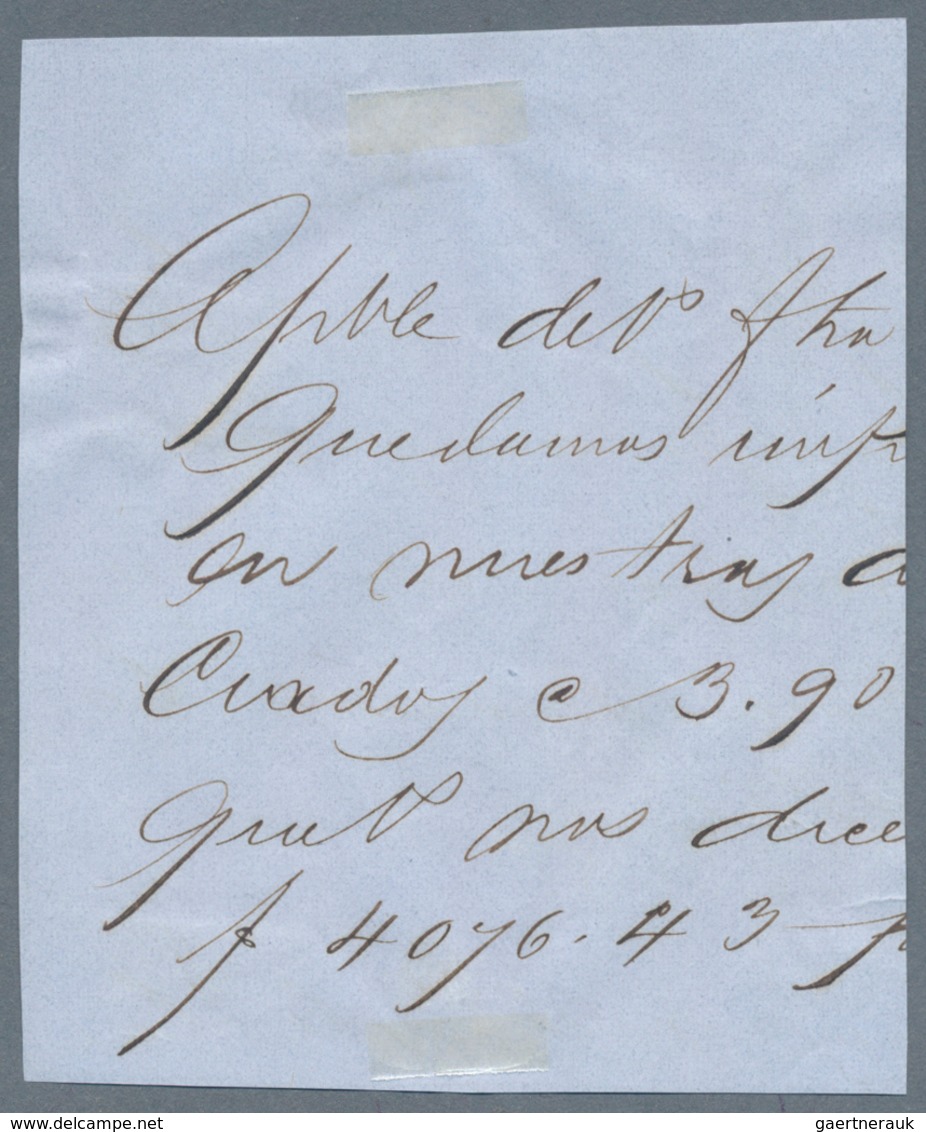 Apble de Vs fha
Quedamos imp
en nuestras
Cuados a 3.90
que Vs nos dice
f 4076.43
delcampe.net
gaertnerauk